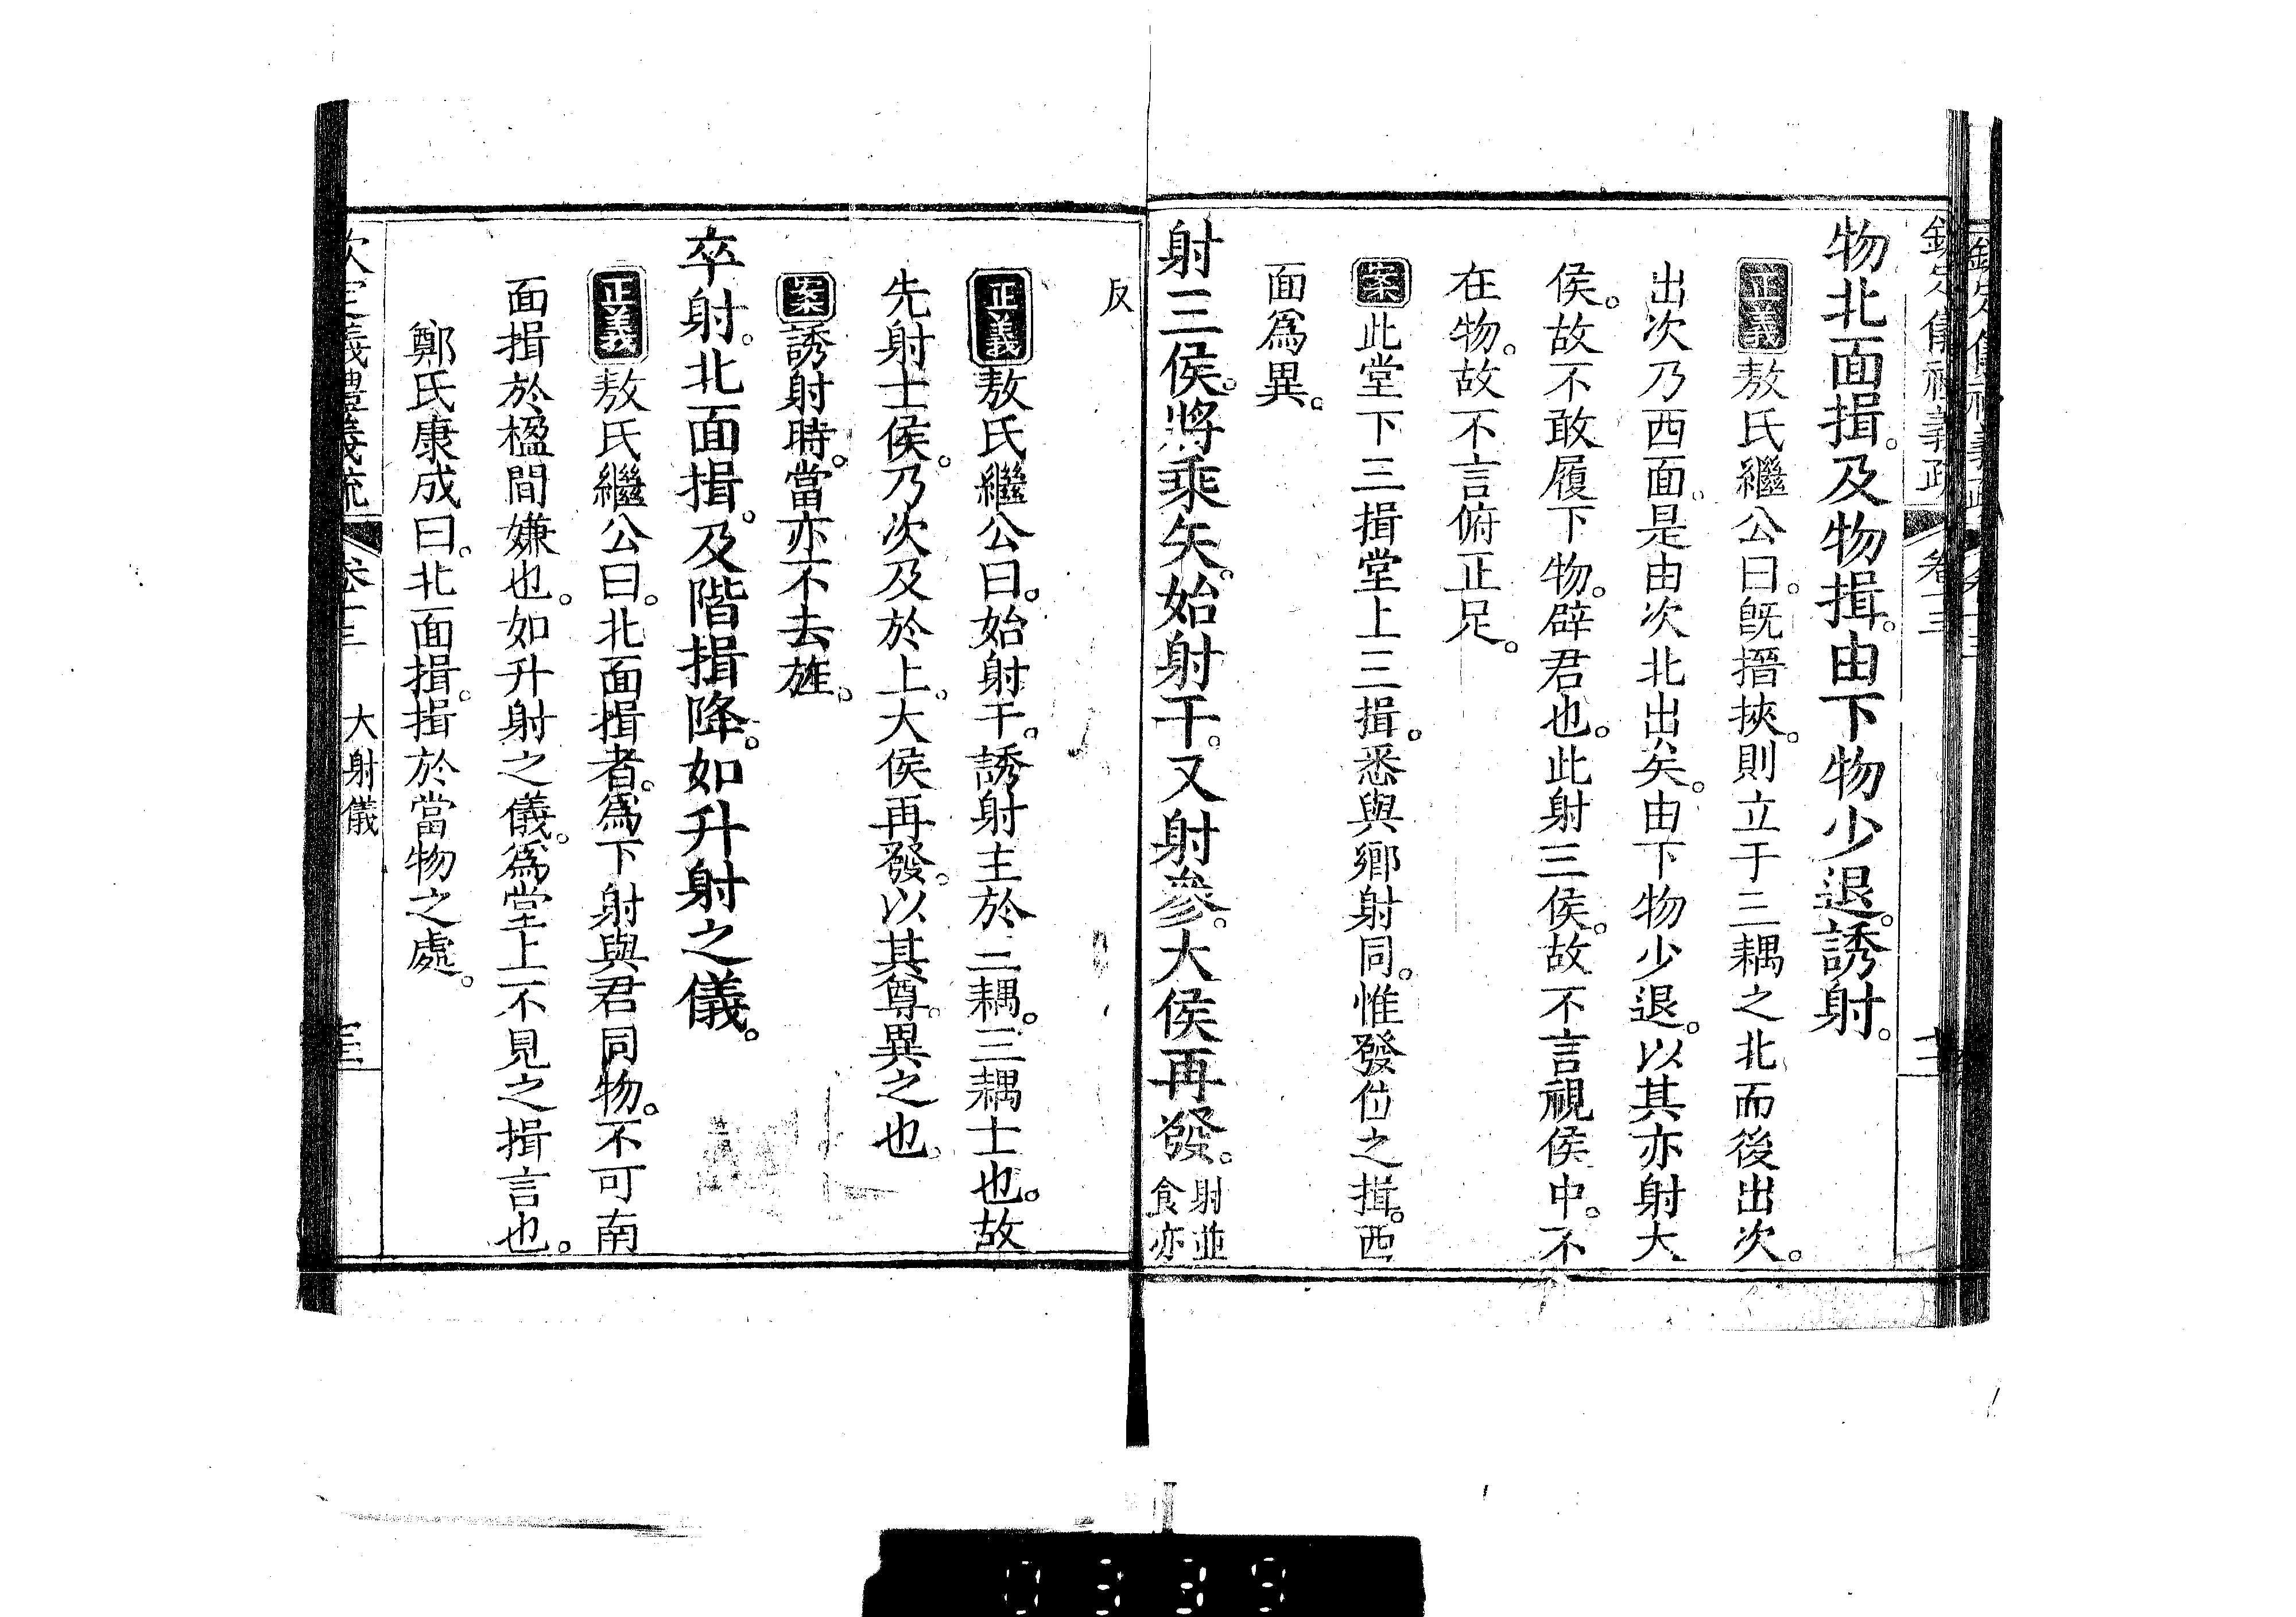 物北面揖。及物揖。由下物少退。誘射。
正義敖氏繼公曰。既搢挾。則立于三耦之北而後出次。
出次乃西面。是由次北出矣。由下物少退。以其亦射大
侯。故不敢履下物。辟君也。此射三侯。故不言視侯中。不
在物。故不言俯正足。
案此堂下三揖堂上三揖。悉與鄉射同。惟發位之揖。西
面爲異。
射三侯。將乘矢。始射干。又射參。大侯再發。射並
食亦
反
正義敖氏繼公曰。始射干。誘射主於三耦。三耦士也。故
先射士侯。乃次及於上。大侯再發。以其尊。異之也。
案誘射時。當亦不去旌。
卒射。北面揖。及階揖降。如升射之儀。
正義敖氏繼公曰。北面揖者。爲下射與君同物。不可南
面揖於楹間嫌也。如升射之儀。爲堂上不見之揖言也。
鄭氏康成曰。北面揖。揖於當物之處。
大射儀
0339